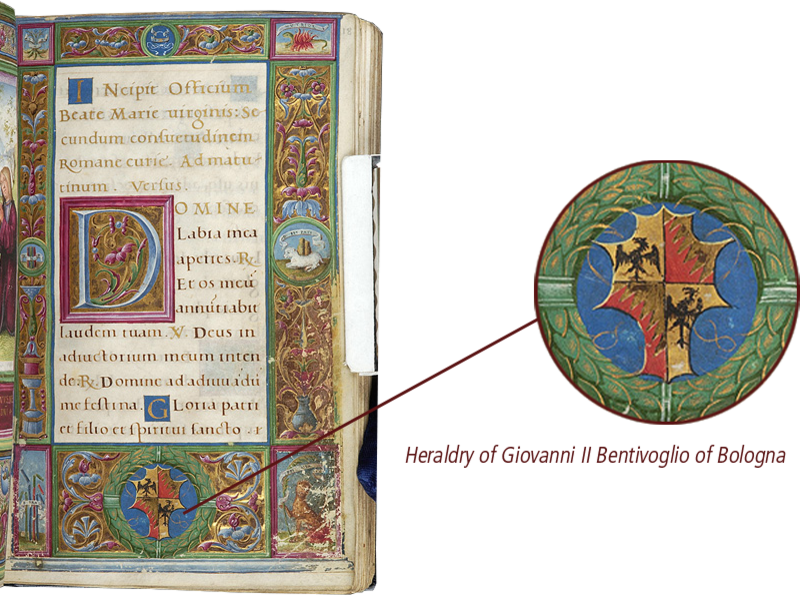 INcipit Officium
Beate Marie uirginis: Se
cundum consuetudinem
Romane curie. Ad matu-
tinum. Versus.
DOMINE
Labia mea
aperies. R.
Et os meū
annūtiabit
laudem tuam. V. Deus in
adiutorium meum inten
de. R. Domine ad adiuuādū
me festina. Gloria patri
et filio et spiritui sancto. s
Heraldry of Giovanni II Bentivoglio of Bologna